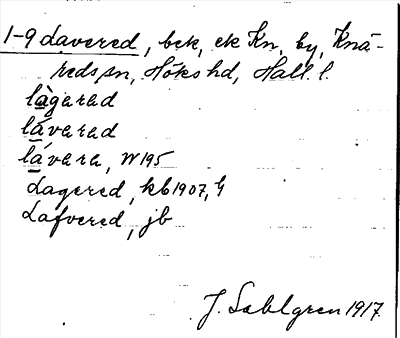 1-9 Lavered, bek, ek Kn, by, Knä-
reds sn, Höks hd, Hall. l.
làgarad
lávarad
lávara, W195
Lagered, kb 1907, G
Lafvered, jb
J. Sahlgren 1917